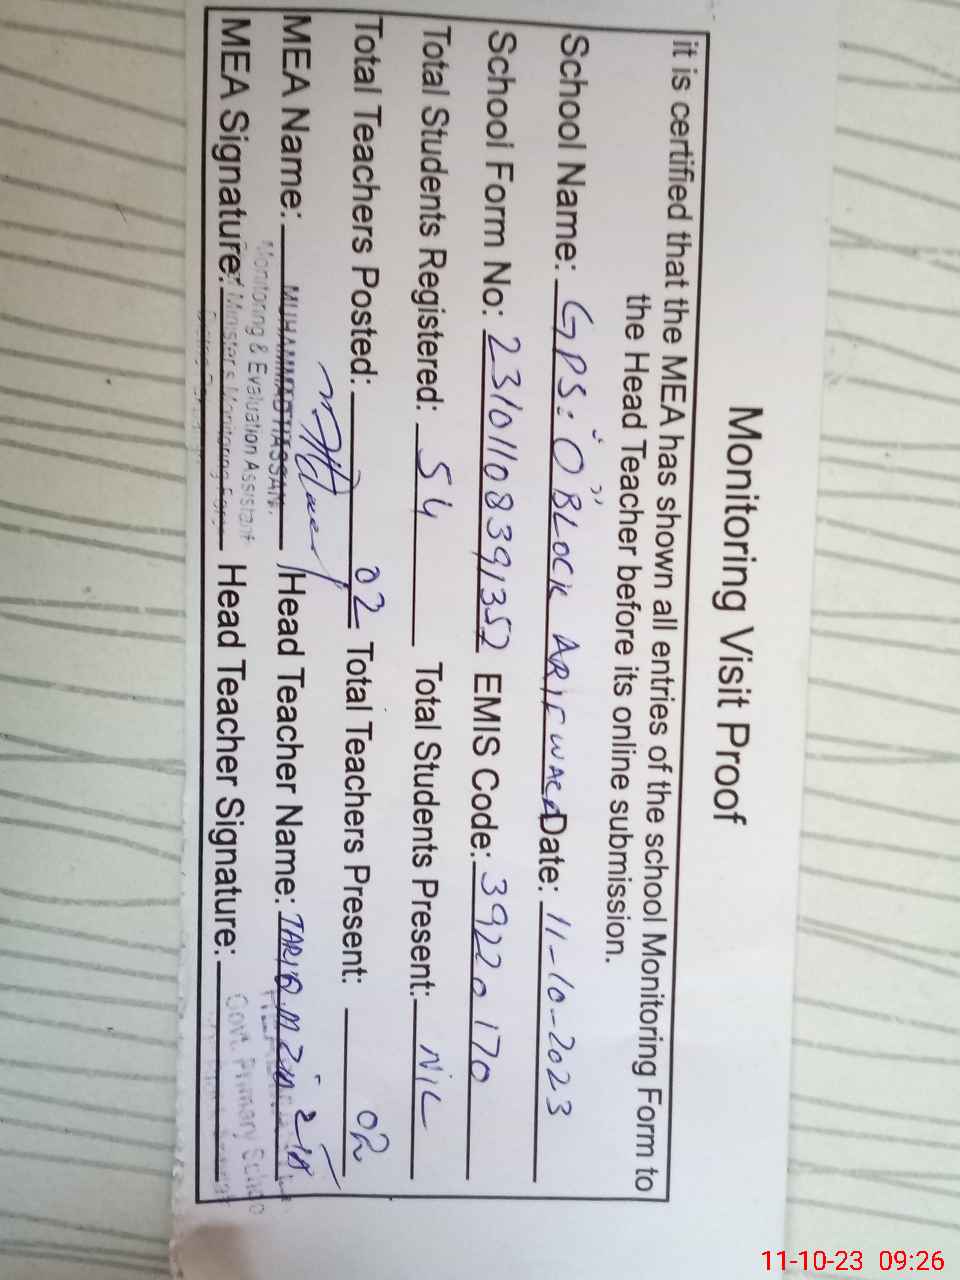 Monitoring Visit Proof
it is certified that the MEA has shown all entries of the school Monitoring Form to
the Head Teacher before its online submission.
School Name: GPS: "O" BLOCK ARIFWALA Date: 11-10-2023
School Form No: 23101108391352 EMIS Code: 39220170
Total Students Registered: 54 Total Students Present: NIL
Total Teachers Posted: 02 Total Teachers Present: 02
MEA Name: MUHAMMAD HASSAN Head Teacher Name: TARIQ
Monitoring & Evaluation Assistant
MEA Signature: Head Teacher Signature:
Minister's Monitoring Force
Govt. Primary School
11-10-23 09:26